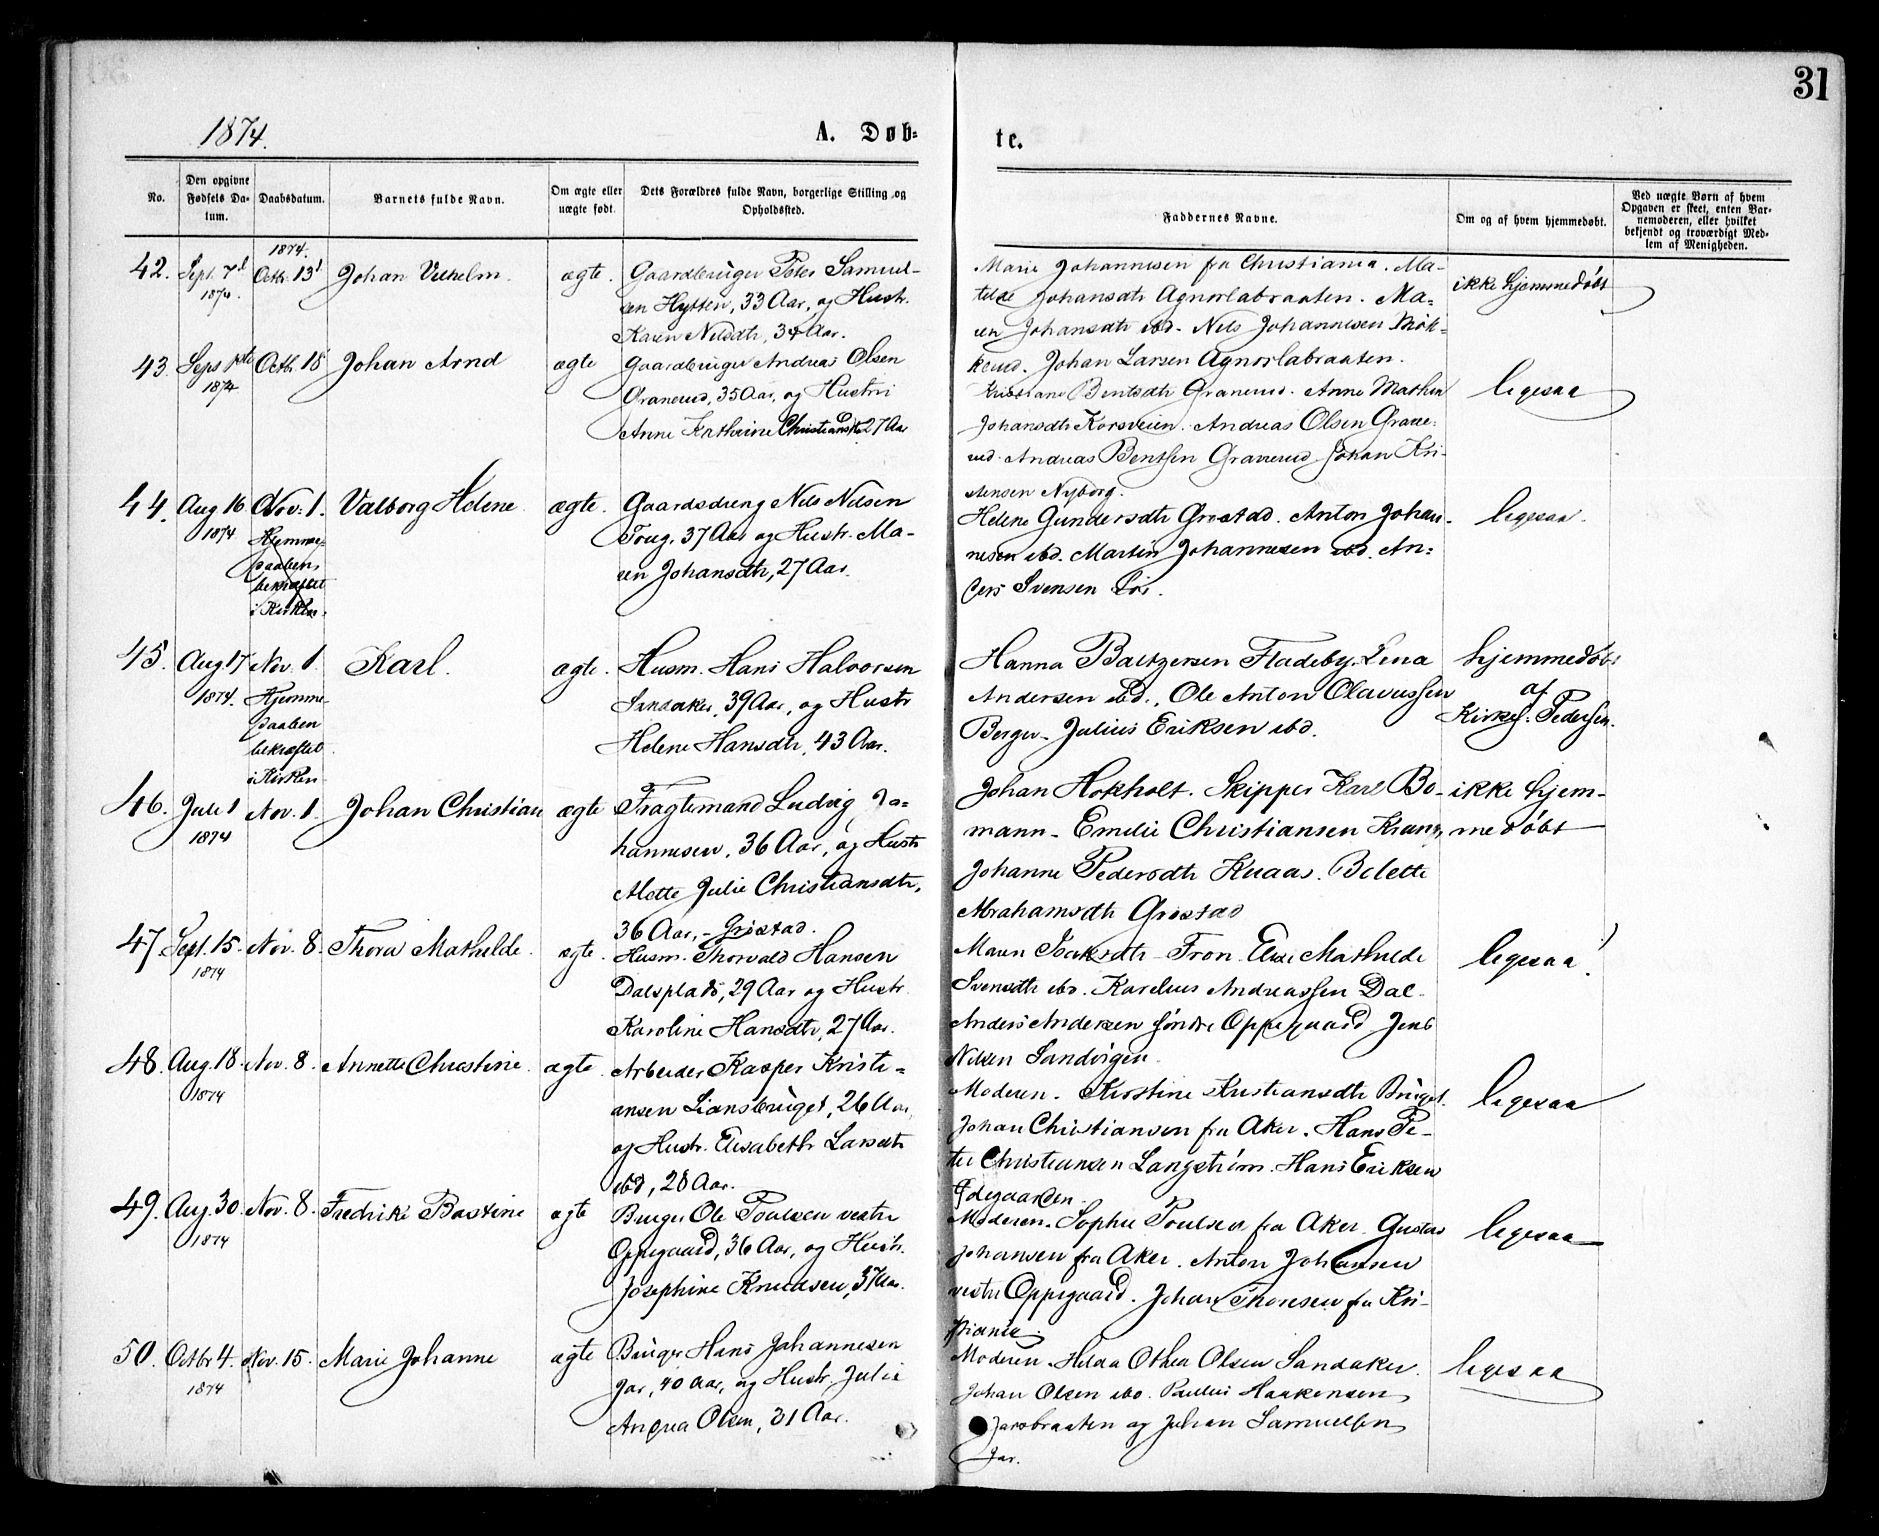 31
1874.
A. Døb-
te.
No.
Den opgivne
Fødsels Da-
tum.
Daabsdatum.
Barnets fulde Navn.
Om ægte eller
uægte født.
Dets Forældres fulde Navn, borgerlige Stilling og
Opholdssted.
Faddernes Navne.
Om og af hvem hjemmedøbt.
Ved uægte Børn af hvem
Opgaven er skeet, enten Bar-
nemoderen, eller hvilket
bekjendt og troværdigt Med-
lem af Menigheden.
1874.
42. Sept. 7d Octb. 13d Johan Vilhelm. ægte. Gaardbruger Peter Samuel-
1874.
sen Hytten, 33 Aar, og Hustr.
Karen Nilsdtr, 34 Aar.
Marie Johannesen fra Christiania. Ma-
tilde Johansdtr Agnorlabraaten. Ma-
ren Johansdtr ibd. Nils Johannesen Møk-
kerud. Johan Larsen Agnorlabraaten.
ikke hjemmedøbt
43. Octb. 18 Johan Arnd ægte Gaardbruger Andreas Olsen
1874
Granerud, 35 Aar, og Hustru
Anne Kathrine Christiansdtr 27 Aar
Kristiane Bentsdtr Granerud. Anne Mathea
Johansdtr Korsveien. Andreas Olsen Grane-
rud. Andreas Bentsen Granerud. Johan Kri-
stensen Nyborg.
ligesaa
44. Aug 16 Nov. 1. Valborg Helene. ægte. Gaardsdreng Nils Nilsen
1874
Hjemme-
daaben,
bekræftet
i Kirken.
Foug, 37 Aar og Hustr. Ma-
ren Johansdtr, 27 Aar.
Helene Gundersdtr Grøstad. Anton Johan-
nesen ibd. Martin Johannesen ibd. An-
ders Svensen
ligesaa.
45. Aug 17 Nov. 1. Karl. ægte. Husm. Hans Halvorsen
1874.
Hjemme-
daaben
bekræftet
i Kirken
Sandaker, 39 Aar, og Hustr
Helene Hansdtr, 43 Aar.
Hanna Baltzersen Fladeby. Lena
Andersen ibd., Ole Anton Olavussen
Berger. Julius Eriksen ibd.
hjemmedøbt
af
Kirkes. Pedersen.
46. Juli 1 Nov. 1 Johan Christian ægte Fragtemand Ludvig Jo-
1874
hannesen, 36 Aar, og Hustr
Mette Julie Christiansdtr,
36 Aar, - Grøstad.
Johan Hokholt. Skipper Karl Bo-
mann. Emilie Christiansen
Johanne Pedersdtr Knaas. Bolette
Abrahamsdtr Grøstad
ikke hjem-
medøbt
47. Sept. 15. Nov. 8. Thora Mathilde. ægte. Husm. Thorvald Hansen
1874
Dalsplads, 29 Aar og Hustr.
Karoline Hansdtr, 27 Aar.
Maren Isaksdtr Fron. Else Mathilde
Svensdtr ibd. Karelius Andreassen Dal.
Anders Andersen søndre Oppegaard Jens
Nilsen Sandvigen.
ligesaa
48. Aug. 18. Nov. 8. Annette Christine. ægte. Arbeider Kasper Kristi-
1874
ansen Liansbruget, 26 Aar,
og Hustr. Elisabeth Larsdtr
ibd, 28 Aar.
Moderen. Kirstine Kristiansdtr Bruget.
Johan Christiansen fra Aker. Hans Pe-
ter Christiansen Langstrøm. Hans Eriksen
Ødegaarden.
ligesaa
49. Aug. 30. Nov. 8. Fredrike Bastine ægte Bruger Ole Poulsen vestre
1874
Oppegaard, 36 Aar, og Hustr.
Josephine Knudsen, 37 Aar.
Moderen. Sophie Poulsen fra Aker. Gustav
Johansen fra Aker. Anton Johansen
vestre Oppegaard. Johan Thoresen fra Kri-
stiania.
ligesaa
50. Octbr 4. Nov. 15. Marie Johanne ægte Bruger Hans Johannesen
1874
Jar, 40 Aar, og Hustr. Julie
Andrea Olsen, 31 Aar.
Moderen. Hilda Othea Olsen Sandaker.
Johan Olsen ibd. Paulus Haakensen
Jarsbraaten og Johan Samuelsen
Jar.
ligesaa